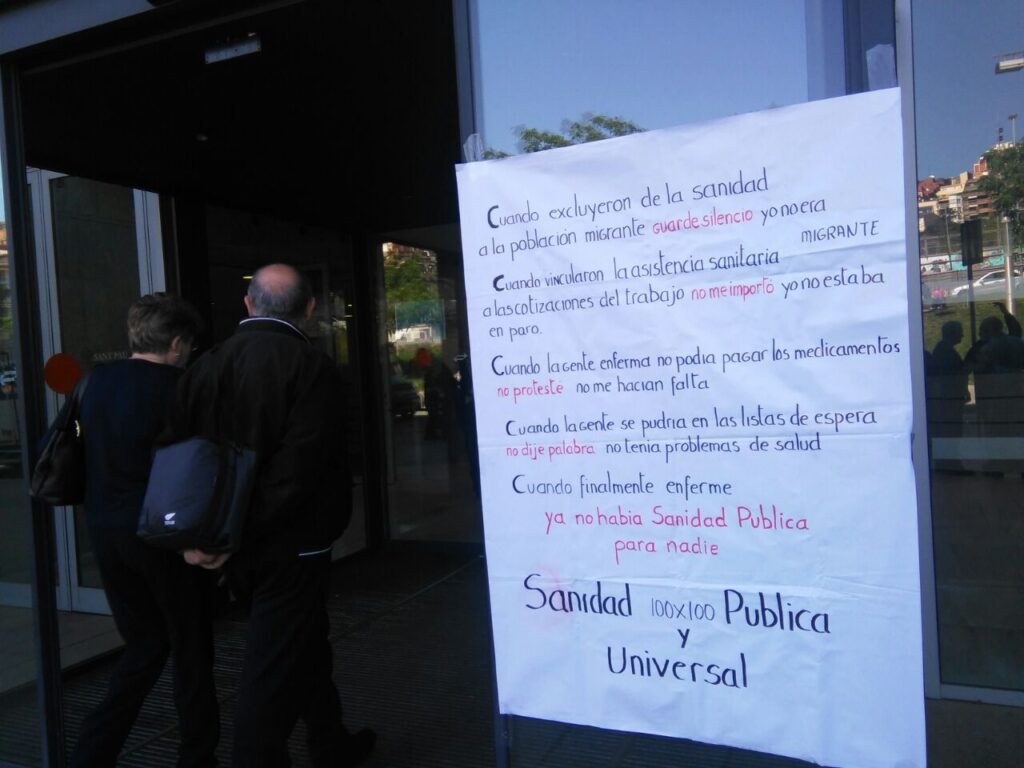 Cuando excluyeron de la sanidad
a la población migrante guarde silencio yo no era
MIGRANTE
Cuando vincularon la asistencia sanitaria
a las cotizaciones del trabajo no me importó yo no estaba
en paro.
Cuando la gente enferma no podia pagar los medicamentos
no protesté no me hacian falta
Cuando la gente se pudria en las listas de espera
no dije palabra no tenia problemas de salud
Cuando finalmente enferme
ya no habia Sanidad Publica
para nadie
Sanidad 100x100 Publica
y
Universal
SANT PAU